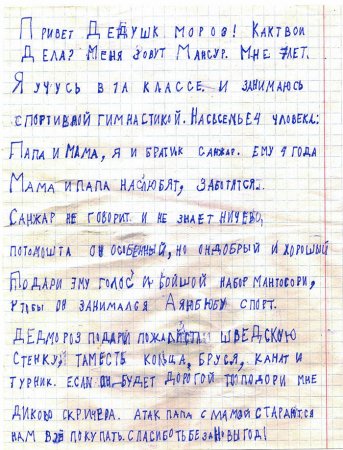 Привет Дедушк мороз! Как твои
Дела? Меня зовут Мансур. Мне 7 лет.
Я учусь в 1а классе. и занимаюсь
спортивной гимнастикой. Нас всемье 4 человека:
Папа и мама, я и братик Санжар. Ему 4 года
Мама и папа нас любят, заботятся.
Санжар не говорит и не знает ничево,
потомошта он особенный, но он добрый и хороший
Подари эму голос и бойшой набор мантовори,
чтобы он занимался А я люблю спорт.
ДЕДМОРОЗ ПОДАРИ ПОЖАЛУСТА ШВЕДСКУЮ
Стенку, там есть кольца, бруся, канат и
турник. Если он будет дорогой то подори мне
диково скричера. А так папа с мамой стараются
нам всё покупать. Спасибо тебе за новый год!